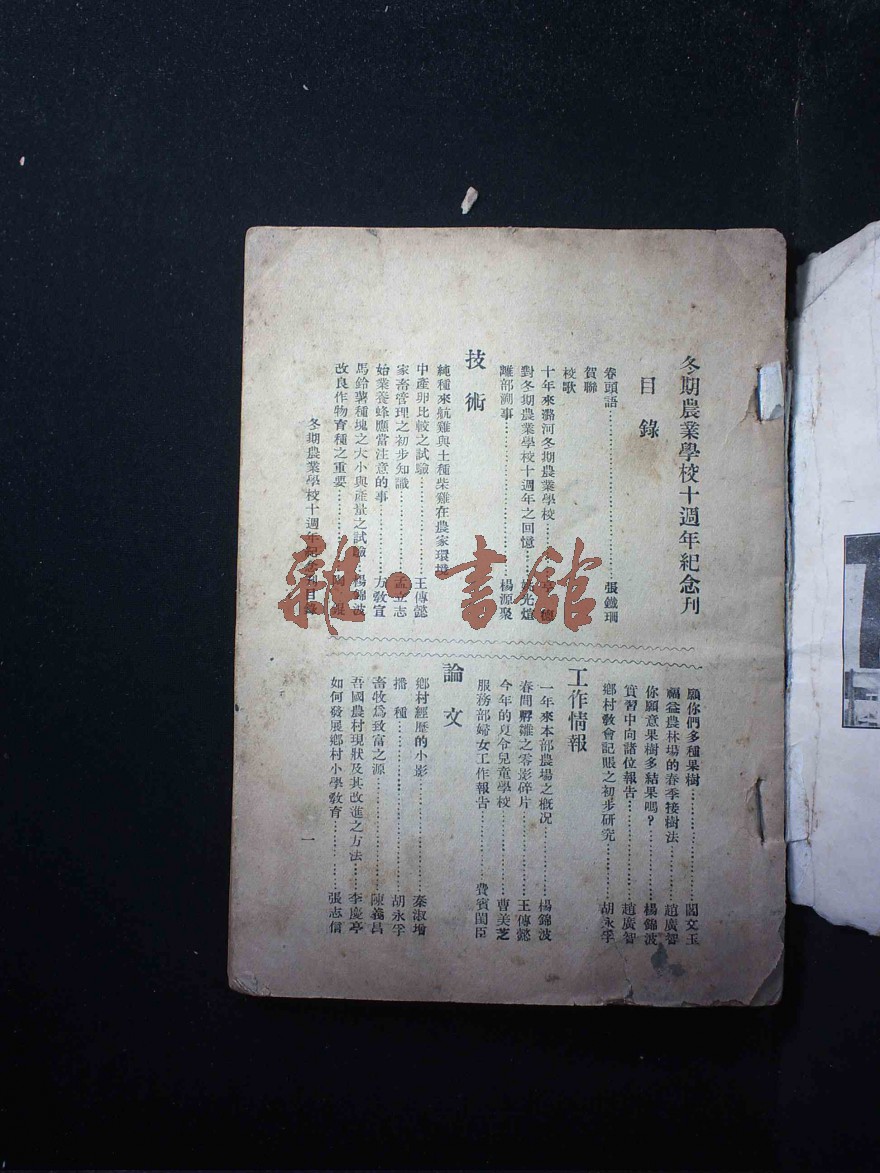 冬期農業學校十週年紀念刊
目錄
卷頭語…………張鐵珊
賀聯
校歌
十年來潞河冬期農業學校…………
對冬期農業學校十週年之回憶…………光煊
離部溯事…………楊源聚
技術
純種來航雞與土種柴雞在農家環境
中產卵比較之試驗…………王傳懿
家畜管理之初步知識…………孟立志
始業養蜂應當注意的事…………方敎宣
馬鈴薯種塊之大小與產量之試驗…………楊錦波
改良作物育種之重要…………
冬期農業學校十週年紀念刊目錄
願你們多種果樹…………閻文玉
福益農林場的春季接樹法…………趙廣智
你願意果樹多結果嗎?…………楊錦波
實習中向諸位報告…………趙廣智
鄉村敎會記賬之初步研究…………胡永孚
工作情報
一年來本部農場之槪况…………楊錦波
春間孵雛之零影碎片…………王傳懿
今年的夏令兒童學校…………曹美芝
服務部婦女工作報告…………費賓閨臣
論文
鄉村經歷的小影…………秦淑增
播種…………胡永孚
畜牧爲致富之源…………陳義昌
吾國農村現狀及其改進之方法…………李慶亭
如何發展鄉村小學敎育…………張志信
一
雜·書館